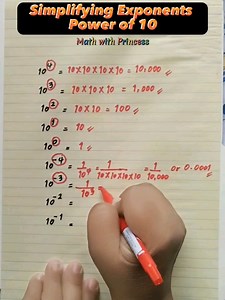 Simplifying Exponents
Power of 10
Math with Princess
10⁴ = 10x10x10x10 = 10,000
10³ = 10x10x10 = 1,000
10² = 10x10 = 100
10¹ = 10
10⁰ = 1
10⁻⁴ = 1/10⁴ = 1/10x10x10x10 = 1/10,000 or 0.0001
10⁻³ = 1/10³
10⁻² =
10⁻¹ =